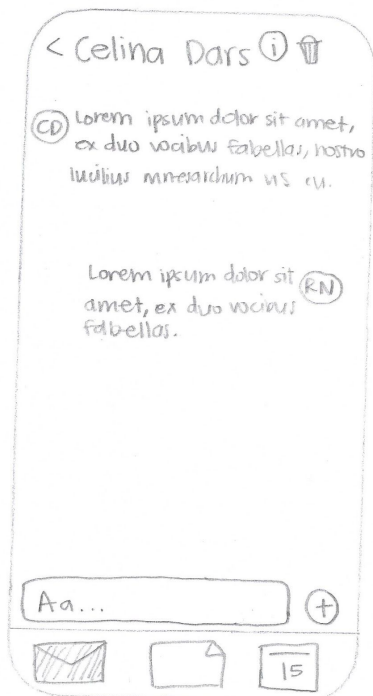 < Celina Dars i
CD
Lorem ipsum dolor sit amet,
ex duo vocibus fabellas, nostro
lucilius mnesarchum us eu.
Lorem ipsum dolor sit
RN
amet, ex duo vocibus
fabellas.
Aa...
+
15